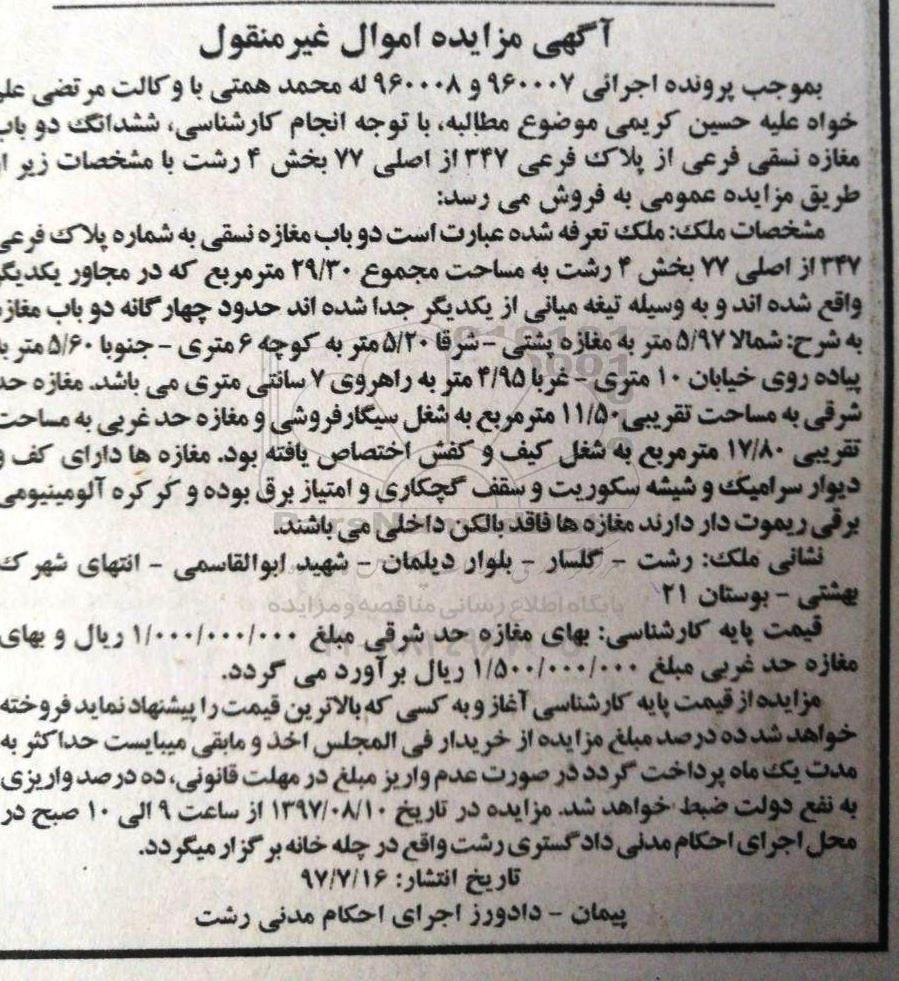 آگهی مزایده اموال غیرمنقول
بموجب پرونده اجرائی ۹۶۰۰۰۷ و ۹۶۰۰۰۸ له محمد همتی با وکالت مرتضی علی
خواه علیه حسین کریمی موضوع مطالبه، با توجه انجام کارشناسی، ششدانگ دو باب
مغازه نسقی فرعی از پلاک فرعی ۳۴۷ از اصلی ۷۷ بخش ۴ رشت با مشخصات زیر از
طریق مزایده عمومی به فروش می رسد:
مشخصات ملک: ملک تعرفه شده عبارت است دو باب مغازه نسقی به شماره پلاک فرعی
۳۴۷ از اصلی ۷۷ بخش ۴ رشت به مساحت مجموع ۲۹/۳۰ مترمربع که در مجاور یکدیگر
واقع شده اند و به وسیله تیغه میانی از یکدیگر جدا شده اند حدود چهارگانه دو باب مغازه
به شرح: شمالا ۵/۹۷ متر به مغازه پشتی - شرقا ۵/۲۰ متر به کوچه ۶ متری - جنوبا ۵/۶۰ متر به
پیاده روی خیابان ۱۰ متری - غربا ۴/۹۵ متر به راهروی ۷ سانتی متری می باشد. مغازه حد
شرقی به مساحت تقریبی ۱۱/۵۰ مترمربع به شغل سیگارفروشی و مغازه حد غربی به مساحت
تقریبی ۱۷/۸۰ مترمربع به شغل کیف و کفش اختصاص یافته بود. مغازه ها دارای کف و
دیوار سرامیک و شیشه سکوریت و سقف گچکاری و امتیاز برق بوده و کرکره آلومینیومی
برقی ریموت دار دارند مغازه ها فاقد بالکن داخلی می باشند.
نشانی ملک: رشت - گلسار - بلوار دیلمان - شهید ابوالقاسمی - انتهای شهرک
بهشتی - بوستان ۲۱
پایگاه اطلاع رسانی مناقصه و مزایده
قیمت پایه کارشناسی: بهای مغازه حد شرقی مبلغ ۱/۰۰۰/۰۰۰/۰۰۰ ریال و بهای
مغازه حد غربی مبلغ ۱/۵۰۰/۰۰۰/۰۰۰ ریال برآورد می گردد.
مزایده از قیمت پایه کارشناسی آغاز و به کسی که بالاترین قیمت را پیشنهاد نماید فروخته
خواهد شد ده درصد مبلغ مزایده از خریدار فی المجلس اخذ و مابقی میبایست حداکثر به
مدت یک ماه پرداخت گردد در صورت عدم واریز مبلغ در مهلت قانونی، ده درصد واریزی
به نفع دولت ضبط خواهد شد. مزایده در تاریخ ۱۳۹۷/۰۸/۱۰ از ساعت ۹ الی ۱۰ صبح در
محل اجرای احکام مدنی دادگستری رشت واقع در چله خانه برگزار میگردد.
تاریخ انتشار: ۹۷/۷/۱۶
پیمان - دادورز اجرای احکام مدنی رشت